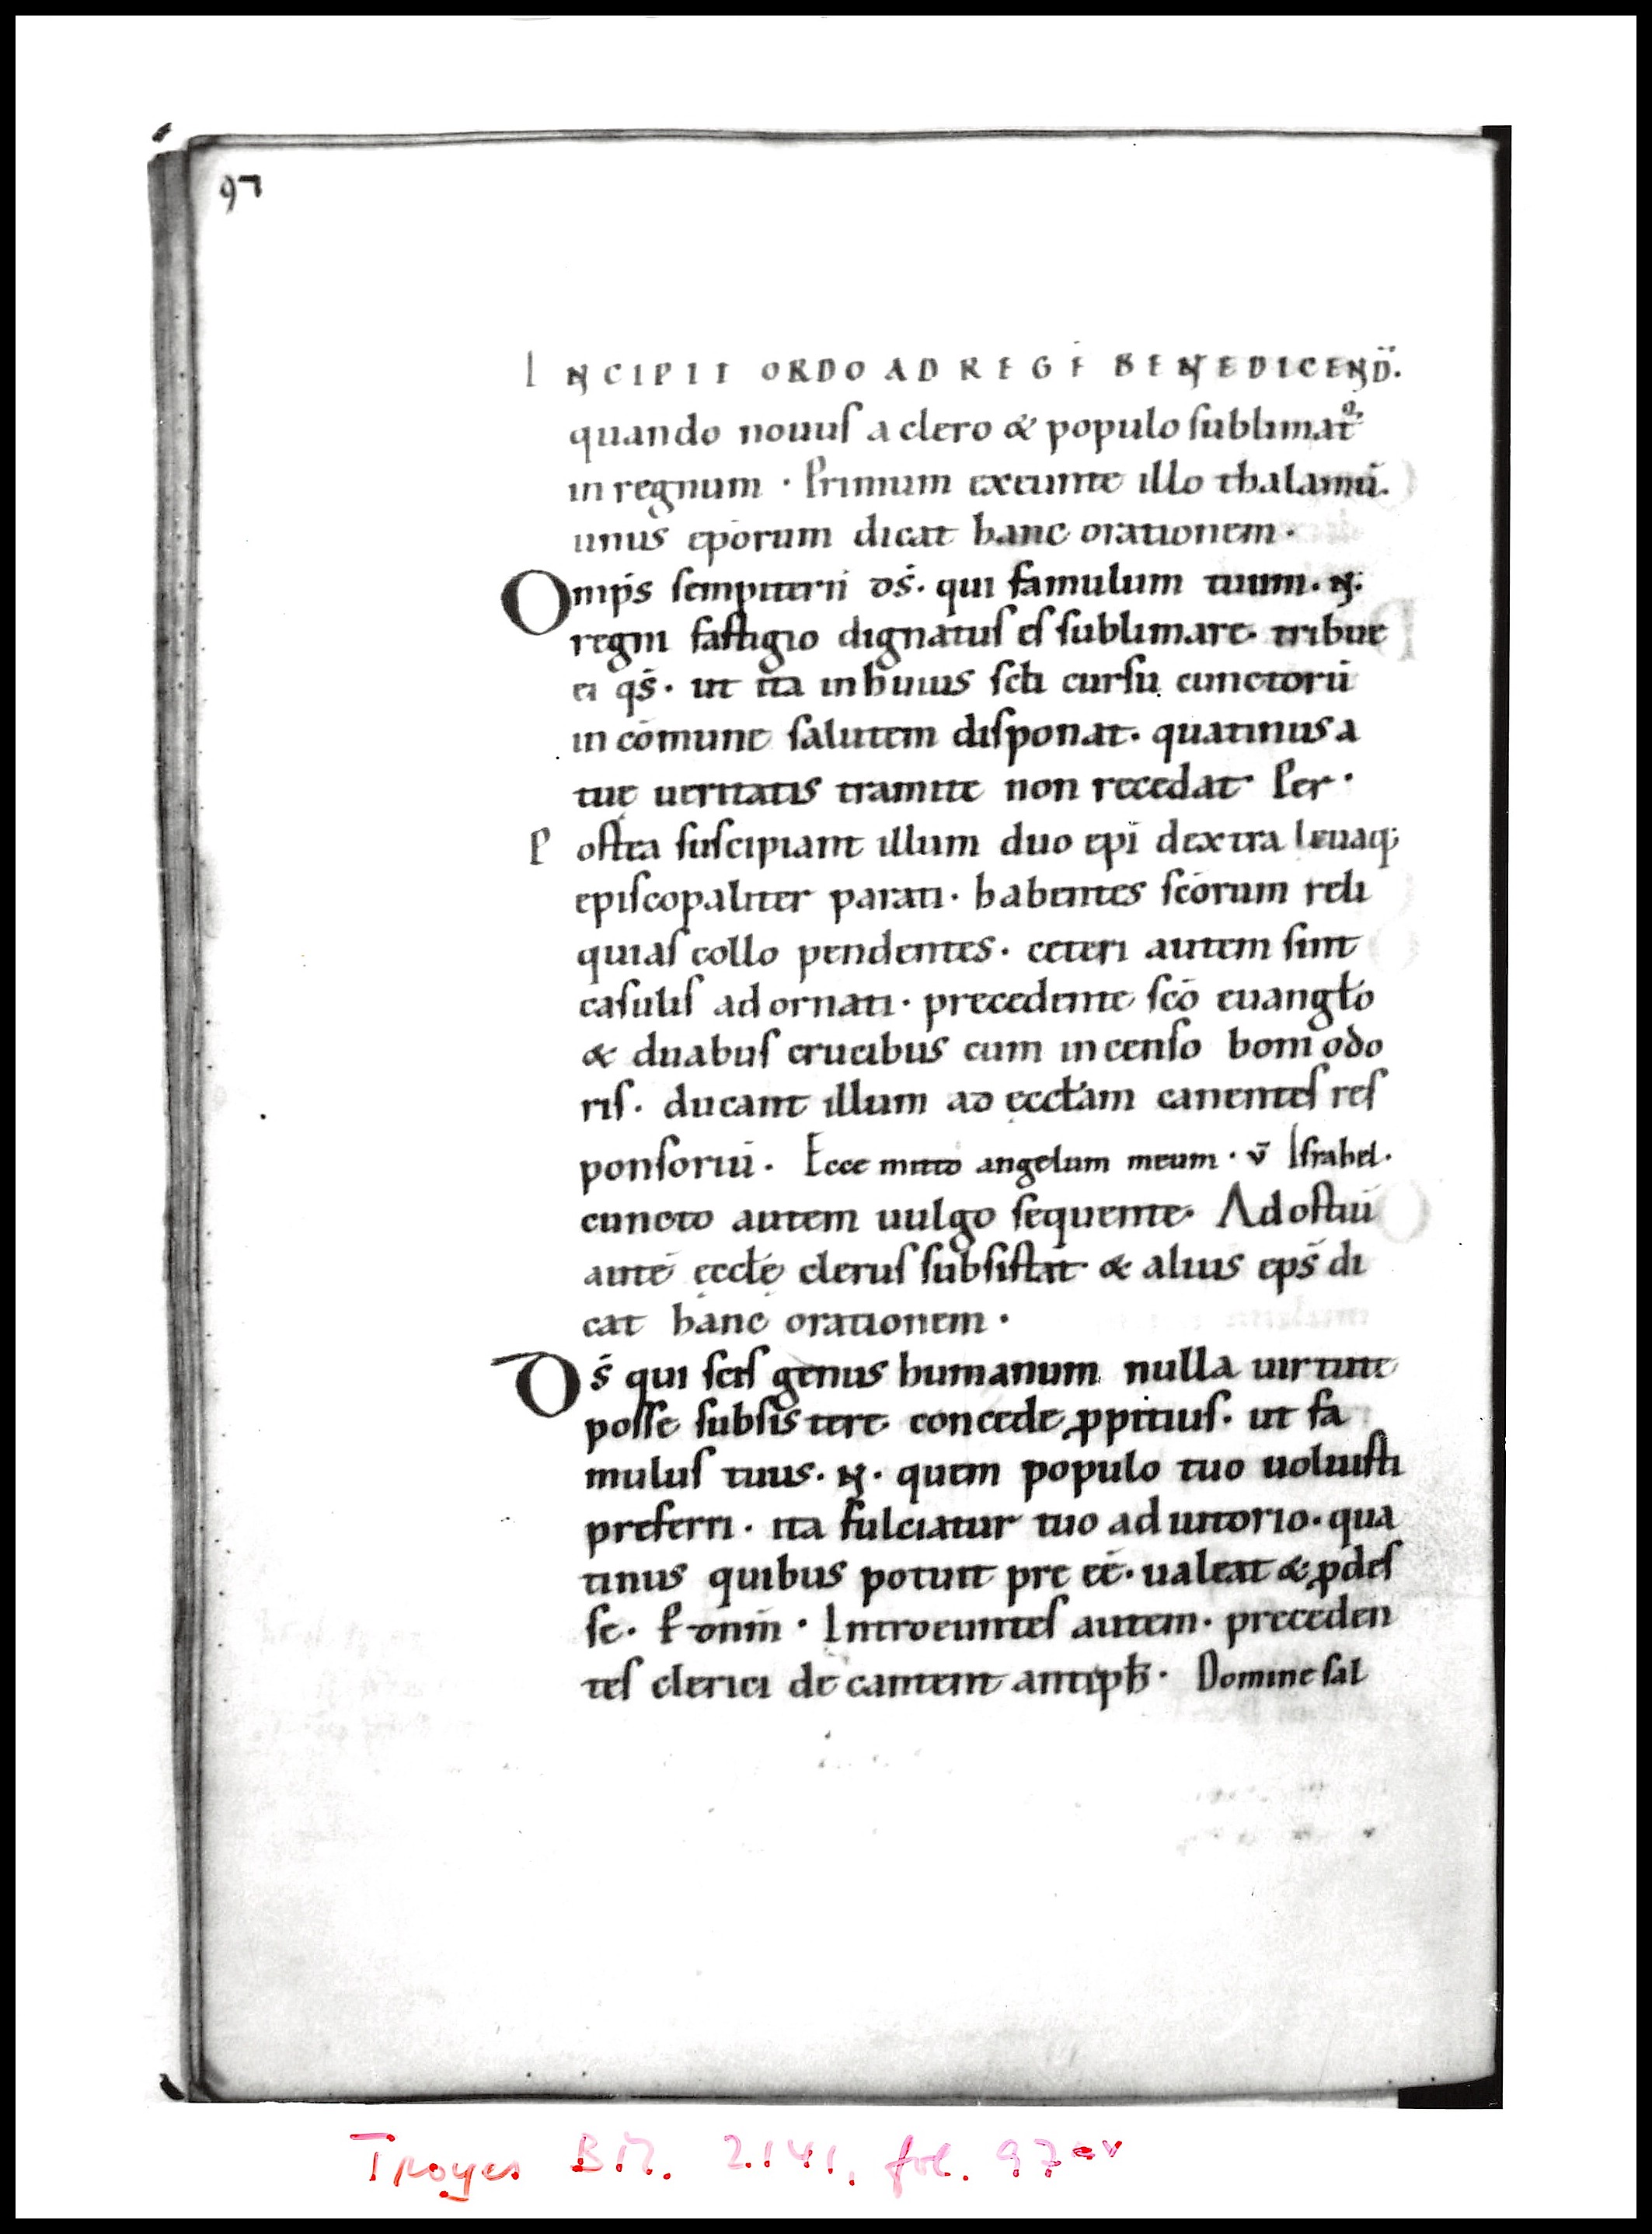 97
INCIPIT ORDO AD REGĒ BENEDICEND̄.
quando nouuſ a clero & populo ſublimat᷑
in regnum · Primum exeunte illo thalamū.
unus ep̄orum dicat hanc orationem·
Omp̄s ſempitern̄ ds̄· qui famulum tuum· N·
regni faſtigio dignatuſ eſ ſublimare· tribue
ei qs̄· ut ita in huius ſcli curſu cunctorū
in cōmune ſalutem diſponat· quatinus a
tuę ueritatis tramite non recedat Per·
Poſtea ſuſcipiant illum duo ep̄i dextra leuaq;
epiſcopaliter parati· habentes ſc̄orum reli
quiaſ collo pendentes· ceteri autem ſint
caſuliſ adornati· precedente ſc̄o euangło
& duabuſ crucibus cum incenſo boni odo
riſ· ducant illum ad ęccłam canenteſ reſ
ponſoriū· Ecce mitto angelum meum· v̄ Iſrahel·
cuncto autem uulgo ſequente· Ad oſtiū
autē ęccłę clerus ſubſiſtat & alius ep̄s di
cat hanc orationem·
Ds̄ qui ſciſ genus humanum nulla uirtute
poſſe ſubſiſtere concede ꝓpitiuſ· ut fa
muluſ tuus· N· quem populo tuo uoluiſti
preferri· ita fulciatur tuo adiutorio· qua
tinus quibus potuit pre eē· ualeat & ꝓdeſ
ſe· P̄ dnm̄· Introeunteſ autem· preceden
teſ clerici decantent antiph̄· Domine ſal
Troyes BM. 2141, fol. 97rv